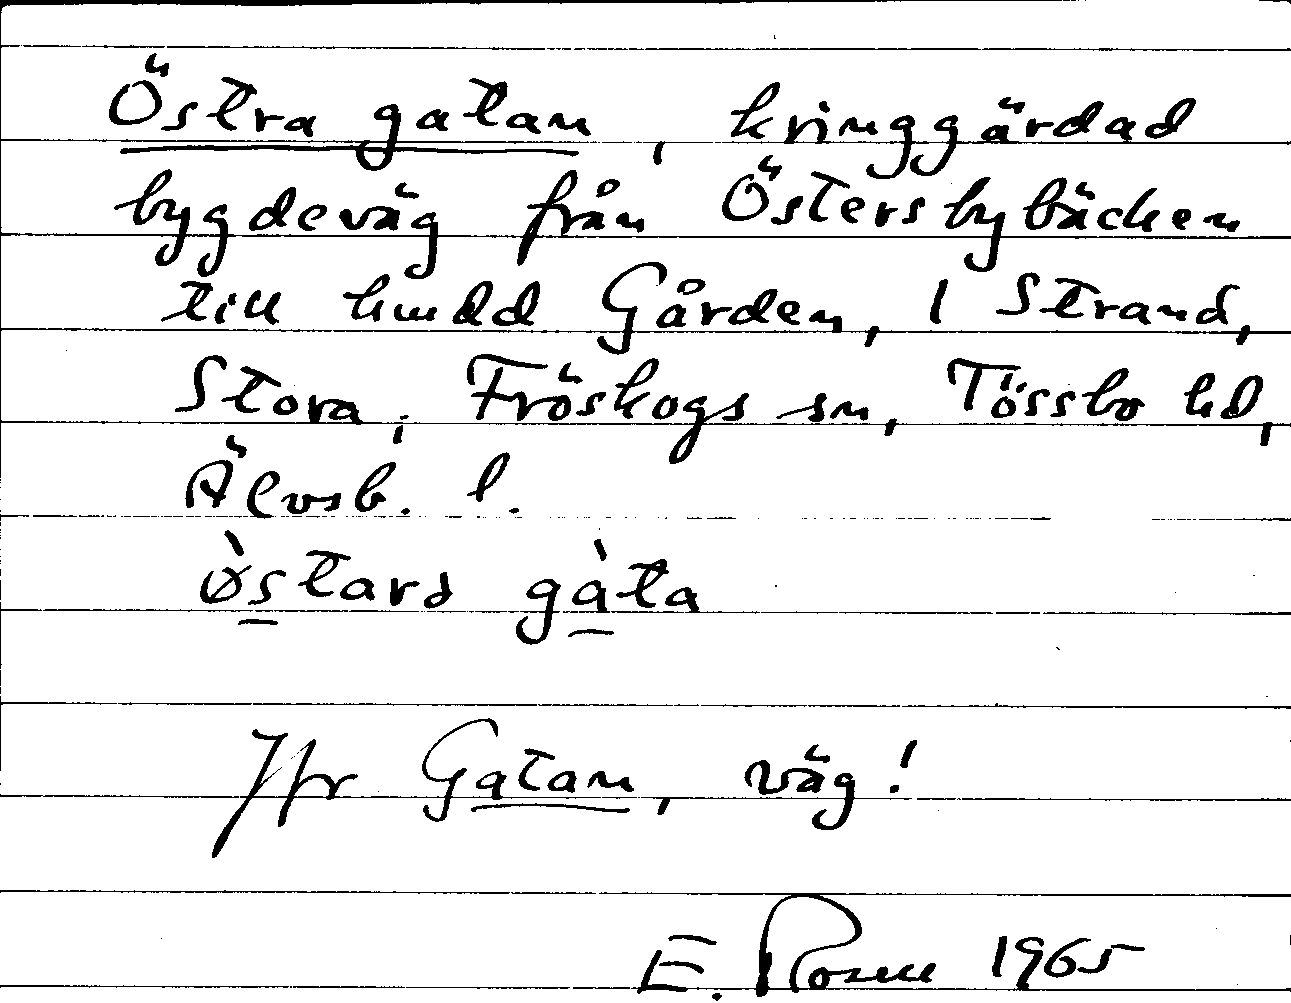 Östra gatan, kringgärdad
bygdeväg från Östersbybäcken
till hmdd Gården, 1 Strand,
Stora, Fröskogs sn, Tössbo hd,
Älvsb. l.
ø̀stard gàta
Jfr Gatan, väg!
E. Rosen 1965